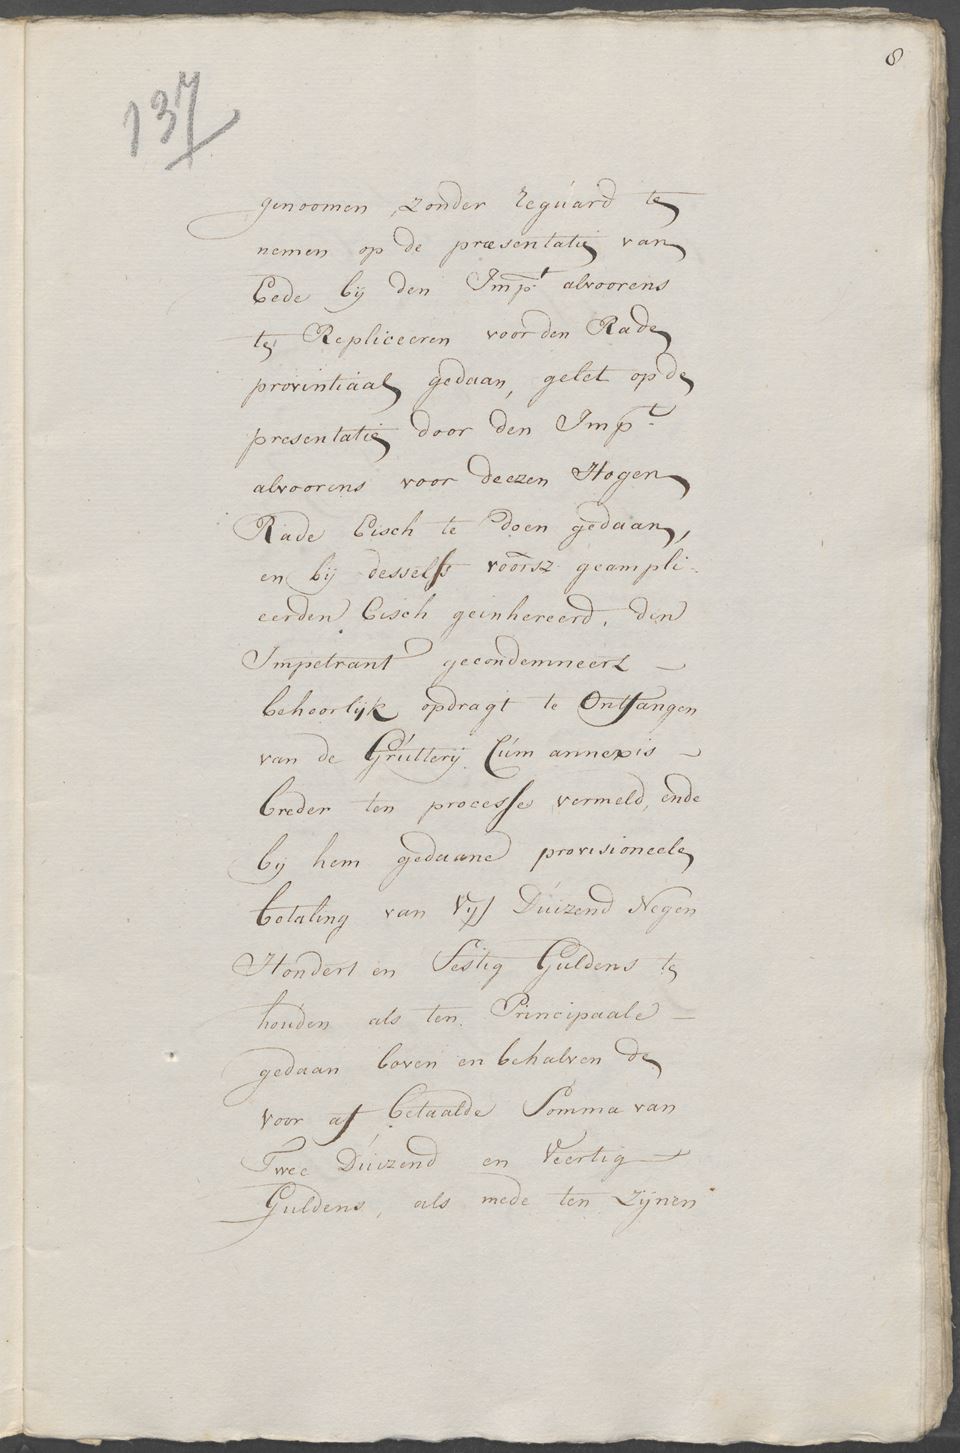 8
137
genoomen, zonder reguard te
nemen op de præsentatie van
Eede bij den Imp.t alvoorens
te Repliceeren voor den Rade
provintiaal gedaan, gelet op de
presentatie door den Imp.t
alvoorens voor deezen Hogen
Rade Eisch te doen gedaan,
en bij desselfs voorsz geampli-
eerden Eisch geinhereerd, den
Impetrant gecondemneert -
behoorlijk opdragt te Ontfangen
van de Grutterij Cum annexis -
breder ten processe vermeld, ende
bij hem gedaane provisioneele
betaling van Vijf Duizend Negen
Hondert en Sestig Guldens te
houden als ten Principaale -
gedaan boven en behalven de
voor af betaalde Somma van
Twee Duizend en Veertig -
Guldens, als mede ten zijnen